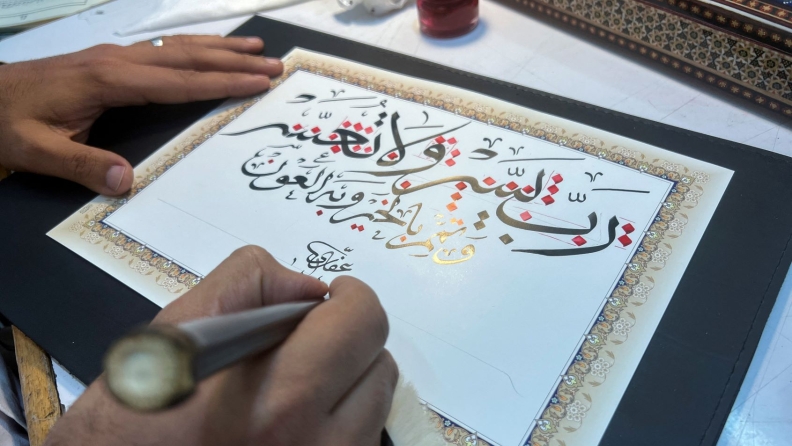 رَبِّ يَسِّر وَلَا تُعَسِّر
وتمم بالخیر وبه العون